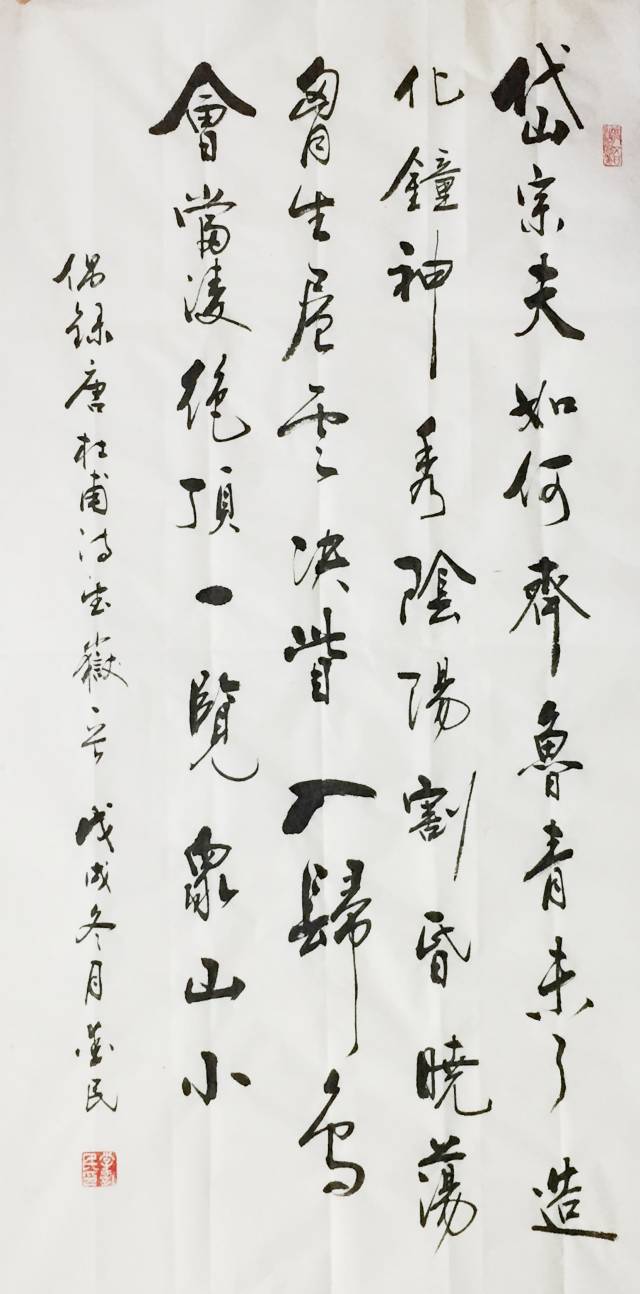 岱宗夫如何齊魯青未了造
化鐘神秀陰陽割昏曉蕩
胷生层云決眥入歸鸟
會當凌絶頂一覽眾山小
偶録唐杜甫诗望嶽一首 戊戌冬月 民